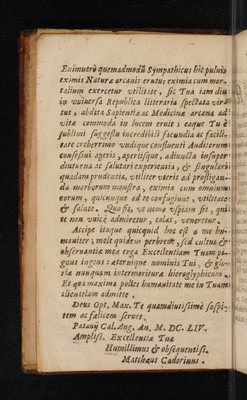 Enimuerò quemadmodũ Sympathicus hic puluis
eximis Naturæ arcanis erutus eximia cum mor-
talium exercetur vtilitate, sic Tua iam diu
in vniuersa Republica litteraria spectata vir-
tus, abdita Sapientiæ ac Medicinæ arcana ad
vitæ commoda in lucem eruit; eaque Tu è
sublimi suggestu incredibili facundia ac facili-
tate creberrimo vndique confluenti Auditorum
consessui aperis, aperisque, adiuncta insuper
diuturna ac salutari experientia, & singulari
quadam prudentia, vtiliter vteris ad profligan-
da morborum monstra, eximia cum omnium
eorum, quicunque ad te confugiunt, vtilitate
& salute. Quo fit, vt nemo vspiam sit, qui
te non vnicè admiretur, colat, veneretur.
Accipe itaque quicquid hoc est à me hu-
maniter; molè quidem perbreue, sed cultus &
obseruantiæ meæ erga Excellentiam Tuam pi-
gnus ingens æternùque nominis Tui, & glo-
riæ nunquam intermorituræ hieroglyphicum.
Et qua maxima polles humanitate me in Tuam
clientelam admitte.
Deus Opt. Max. Te quamdiutissimè sospi-
tem ac fælicem seruet.
Patauij Cal. Aug. An. M. DC. LIV.
Ampliss. Excellentiæ Tuæ
Humillimus & obsequentiss.
Matthæus Cadorinus.